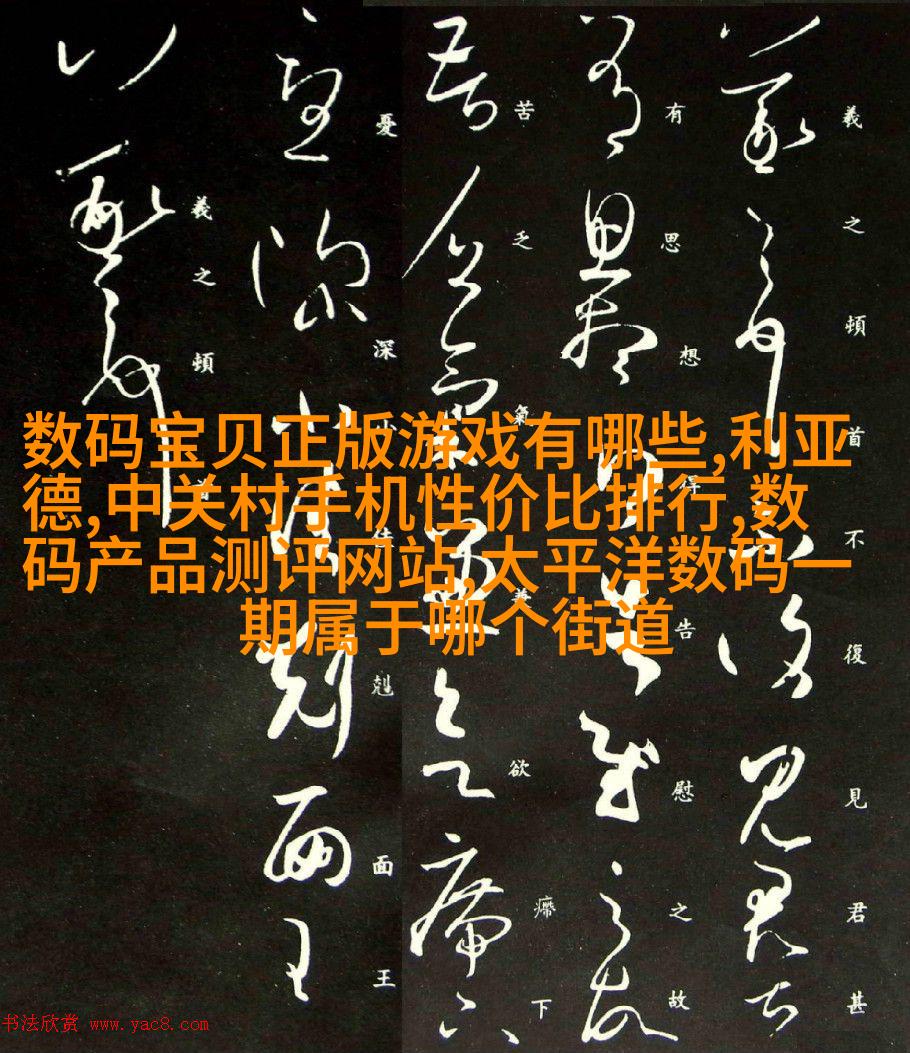 数码宝贝正版游戏有哪些,利亚
德,中关村手机性价比排行,数
码产品测评网站,太平洋数码一
期属于哪个街道
羲之頓首不復見君甚
有思想得告慰之故
苦乏氣善欲下
憂深小佳剋面王
羲之頓首
书法欣赏 www.yac8.com